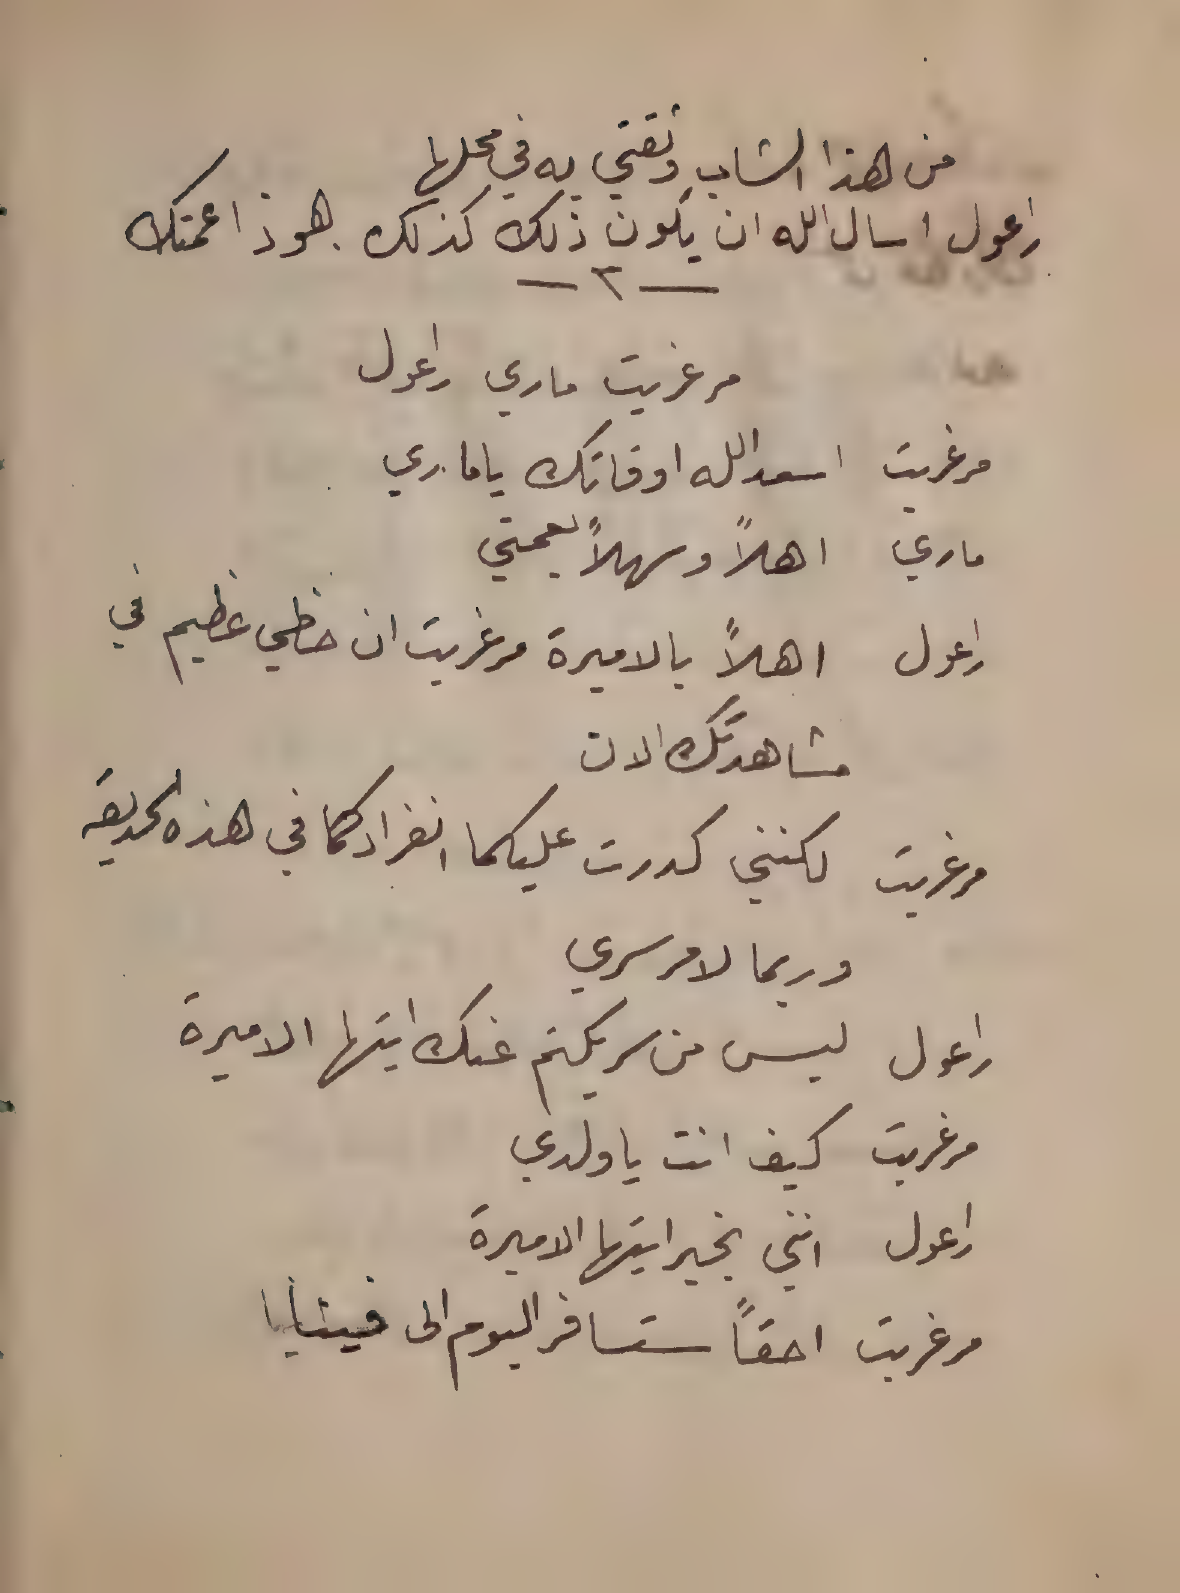 من هذا الشاب وثقتي به في محلها
راعول اسال الله ان يكون ذلك كذلك هوذا عمتك
— ٣ —
مرغريت ماري راعول
مرغريت اسعد الله اوقاتك يا ماري
ماري اهلاً وسهلاً بعمتي
راعول اهلاً بالاميرة مرغريت ان حظي عظيم في
مشاهدتك الان
مرغريت لكنني كدرت عليكما انفرادكما في هذه الحديقه
وربما لامر سري
راعول ليس من سر يكتم عنك ايتها الاميرة
مرغريت كيف انت يا ولدي
راعول انني بخير ايتها الاميرة
مرغريت احقاً ستسافر اليوم الى